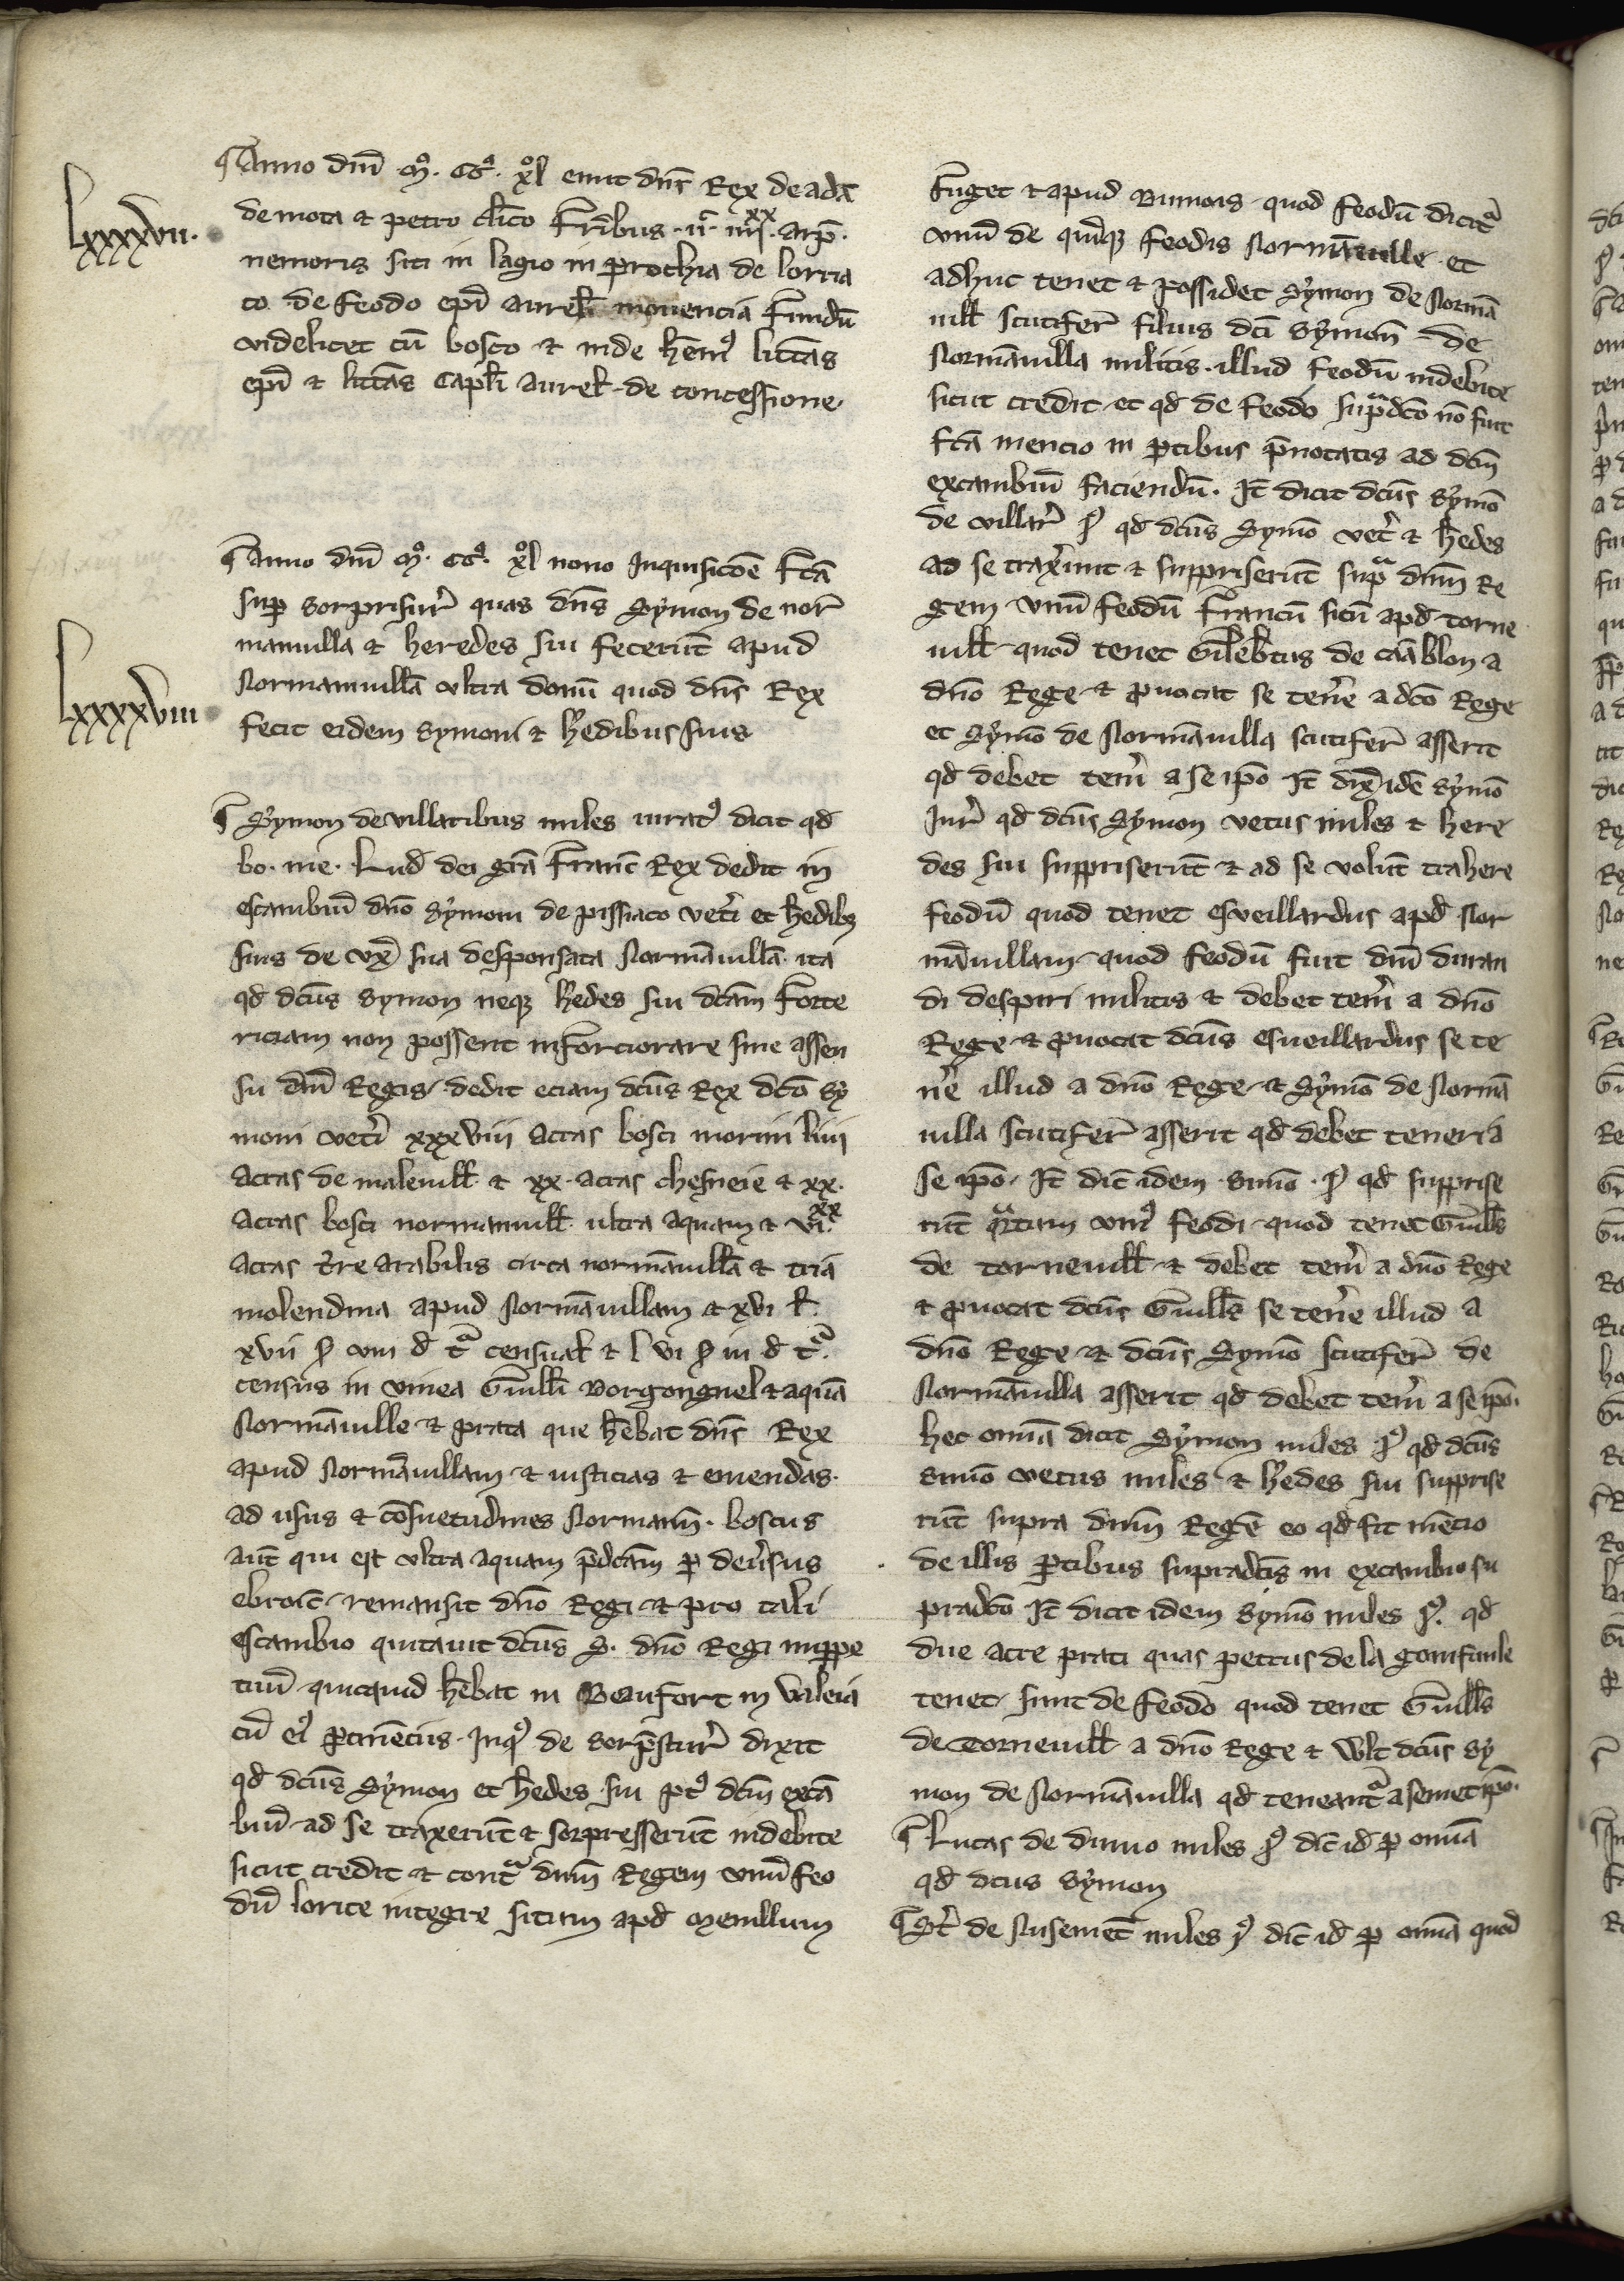 ¶ Anno dnī mº. ccº. xlº emit dns Rex de adā
lxxxxvii.
de mota et petro clīco Fribus .ii. iiiixx. arp̄.
nemoris siti in lagio in prochia de lorria
co de feodo epī aurel̄ movencia Fundū
videlicet cū bosco et inde hem9 littās
epī et littās Capłi aurel̄ de concessione.
¶ Anno dnī mº. ccº. xlº nono Inquisicōe Fcā
sup sorprisur̄ quas dns Symon de nor
manuilla et heredes sui fecerūt apud
Normannuillā ultra donū quod dns Rex
lxxxxviii
fecit eidem symoni et hedibus suis
¶ Symon de villaribus miles iurat9 dicit qd
bo. me. Lud dei grā Franc̄ Rex dedit in
escambiū dno Symoni de pissiaco vetī et hedibȝ
suis de ux̄ sua desponsata Normāuillā ita
qd dcūs Symon neqȝ hedes sui dcām Forte
riciam non possent inforciorare sine assen
su dnī Regis. dedit eciam dcūs Rex dcō Sy
moni vetī xxxviii acras bosci morini liiij
acras de maleuill̄ et xx. acras chesneie et xx.
acras bosci normannuill̄ ultra aquam et vi.xx
acras tre arabilis circa normāuillā et tria
molendina apud Normāuillam et xvi ł.
xvii s viii d t censual̄ et l vi s iii d t.
census in vinea Guilłi Borgongnel et aquā
Normāuille et prata que hēbat dns Rex
apud Normāuillam et iusticias et emendas.
ad usus et cōsuetudines Normann̄. boscus
aut̄ qui est ultra aquam p̄dcām p̄ deūsus
ebroic̄ remansit dno Regi et pro tali
escambio quitauit dcūs S. dno Regi imppe
tuū quicquid hēbat in Beaufort in Valeia
cū ei9 ptinēciis. Inq9 de sorp̄stur̄ dixit
qd dcūs Symon et hedes sui pt9 dcm̄ excā
biū ad se traxerūt et sorpresserūt indebite
sicut credit et cont̄ dnm̄ Regem unū feo
dū lorice integre situm apd menillum
Fuget et apud Bumois quod feodū dicit̄
unū de quinqȝ feodis Normāuille et
adhuc tenet et possidet Symon de Normā
uill̄ scutifer̄ filius dcī Symon̄ de
Normāuilla militis. illud feodū indebite
sicut credit et qd de feodo sup̄dcō nō fuit
fcā mencio in ptibus p̄notatis ad dcm̄
excambiū faciendū. It̄ dicit dcūs Symō
de villar̄ 9 qd dcūs Symō vet̄ et hedes
ad se trax̄unt et suppriserūt sup̄ dnm̄ Re
gem unū feodū francū sitū apd torne
uill̄ quod tenet Gilebtus de cāblon a
dno Rege et puocat se tene a dcō Rege
et Symō de Normāuilla scutifer̄ asserit
qd debet tenī a se ipō It̄ dix̄ idē Symō
Jur̄ qd dcūs Symon vetus miles et here
des sui suppriserūt et ad se volūt trahere
feodū quod tenet esveillardus apd Nor
māuillam quod feodū fuit dnī duran
di despari militis et debet tenī a dno
Rege et puocat dcūs esueillardus se te
ne illud a dno Rege et Symō de Normā
uilla scutifer̄ asserit qd debet teneri a
se ipō. It̄ dic̄ idem Simō. 9 qd supprise
rūt q̄rtum uni9 feodi quod tenet Guilłs
de torneuill̄ et debet tenī a dno Rege
et puocat dcūs Guilłs se tene illud a
dno Rege et dcūs Symō scutifer̄ de
Normāuilla asserit qd debet tenī a se ipō.
hec omīa dicit Symon miles 9 qd dcūs
Simō vetus miles et hedes sui supprise
rūt supra dnm̄ Regē eo qd fit mēcio
de illis ptibus supradcīs in excambio su
pradcō It̄ dicit idem Symō miles 9. qd
due acre prati quas petrus de la gonifaule
tenet sunt de feodo quod tenet Guilłs
de Torneuill̄ a dno Rege et Vlt̄ dcūs Sy
mon de Normāuilla qd teneant̄ a semet ipō.
¶ Lucas de dumo miles 9 dic̄ id p omīa
qd dcūs Symon
¶ St̄ de Nusemēt miles 9 dic̄ id p omīa quod